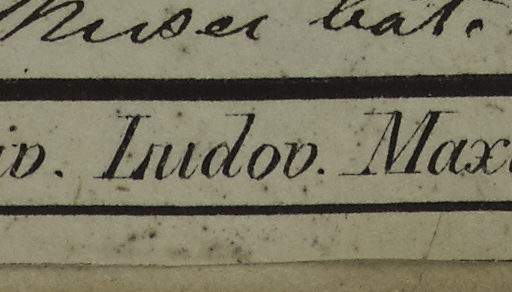 Musei bat.
iv. Ludov. Max